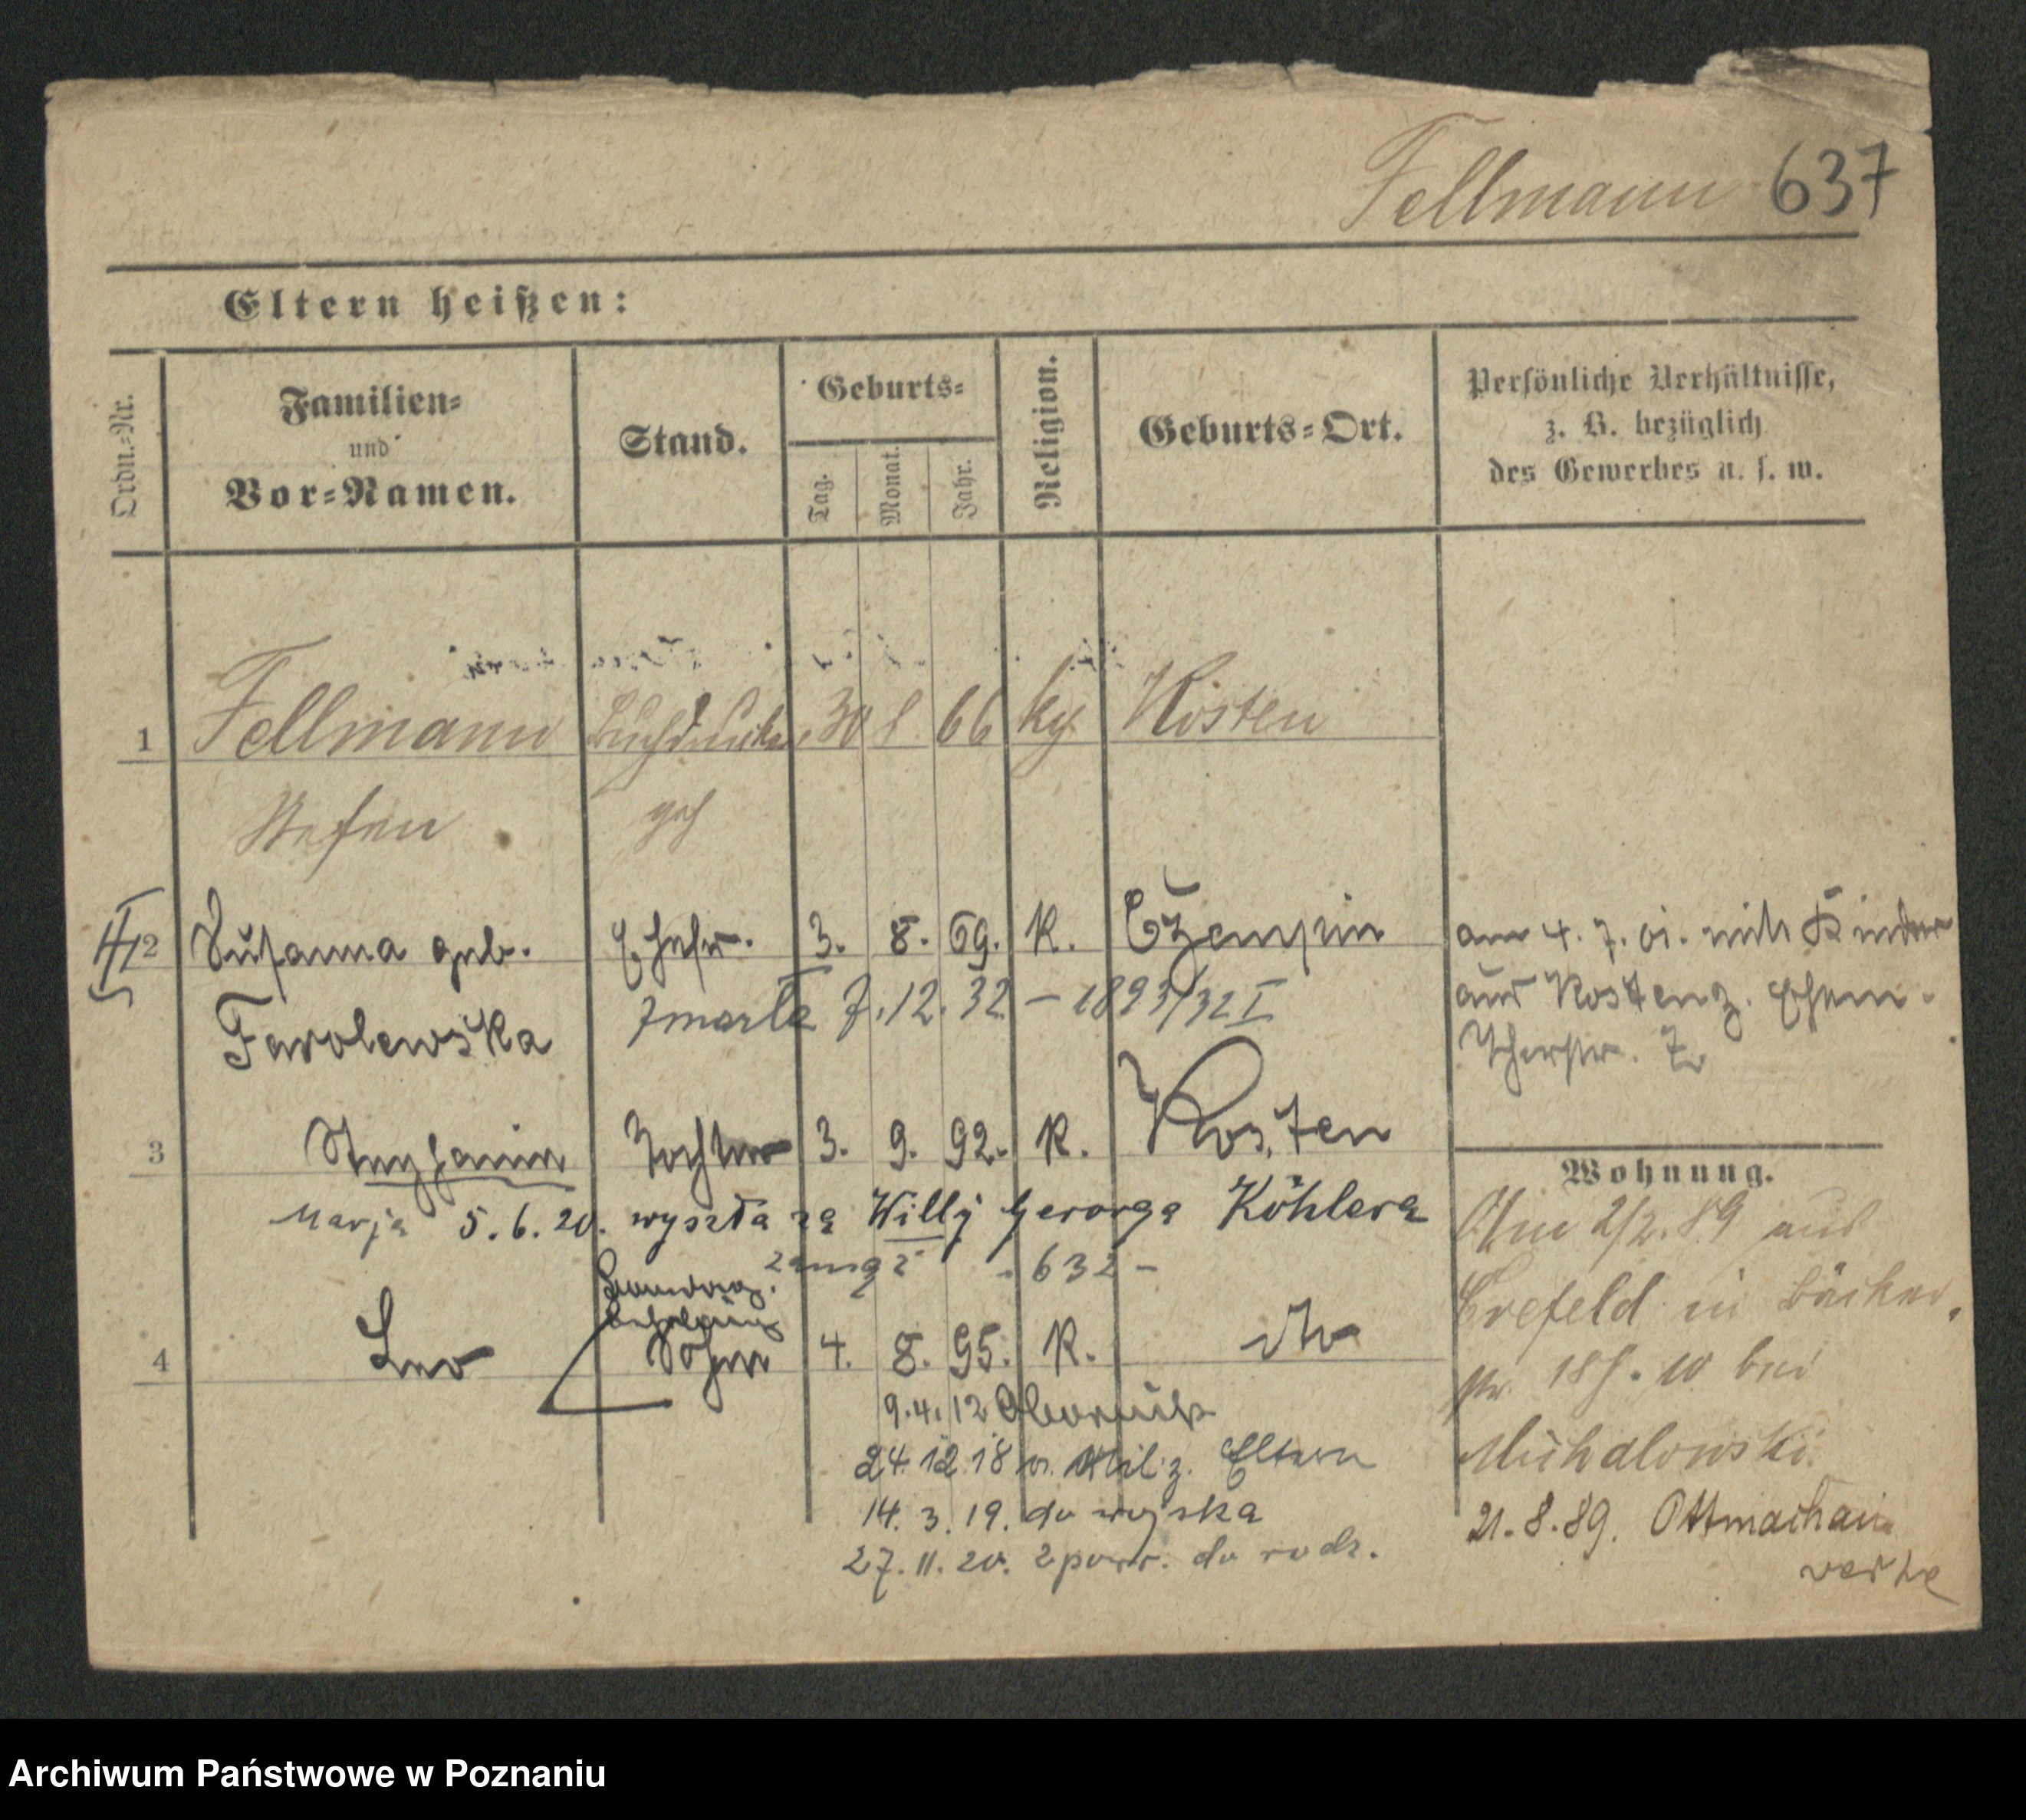 Fellmann 637
Eltern heißen:
Ordn.-Nr.
Familien-
und
Vor-Namen.
Stand.
Geburts-
Tag.
Monat.
Jahr.
Religion.
Geburts-Ort.
Persönliche Verhältnisse,
z. B. bezüglich
des Gewerbes u. s. w.
1 Fellmann Buchdrucker 30 8 66 kg Kosten
Stefan
2 Susanna geb. Ehefr. 3. 8. 69. K. Czempin
zmarła 7.12.32 – 1893/32 I
am 4. 7. 01. mit Kinder
aus Kosten z. Ehem.
3 Stephanie Tochter 3. 9. 92. K. Kosten
Marja 5.6.20. wyszła za Willy Georga Köhlera
zamąż 632 –
4 Leo Sohn 4. 8. 95. K. do
9.4.12 Obornik
24.12.18 v. Mil. z. Eltern
14. 3. 19. do wojska
27. 11. 20. z powr. do rodz.
Wohnung.
Am 2/2. 89 aus
Crefeld in Bäcker
str. 18 bei
Michalowski
21.8.89. Ottmachau